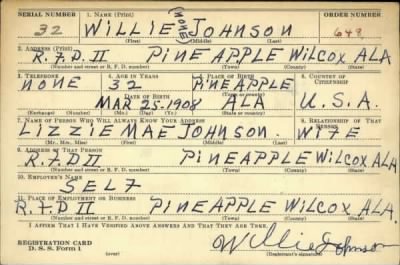 SERIAL NUMBER 1. NAME (Print) ORDER NUMBER
32 WILLIE (NONE) JOHNSON 648
(First) (Middle) (Last)
2. ADDRESS (Print)
R.F.D II PINE APPLE WILCOX ALA
(Number and street or R. F. D. number) (Town) (County) (State)
3. TELEPHONE 4. AGE IN YEARS 5. PLACE OF BIRTH 6. COUNTRY OF CITIZENSHIP
NONE 32 PINEAPPLE
DATE OF BIRTH (Town or county)
MAR 25.1908 ALA U.S.A.
(Exchange) (Number) (Mo.) (Day) (Yr.) (State or country)
7. NAME OF PERSON WHO WILL ALWAYS KNOW YOUR ADDRESS 8. RELATIONSHIP OF THAT PERSON
LIZZIE MAE JOHNSON. WIFE
(Mr., Mrs., Miss) (First) (Middle) (Last)
9. ADDRESS OF THAT PERSON
R.F.D II PINEAPPLE WILCOX ALA.
(Number and street or R. F. D. number) (Town) (County) (State)
10. EMPLOYER'S NAME
SELF
11. PLACE OF EMPLOYMENT OR BUSINESS
R.F.D II PINEAPPLE WILCOX ALA.
(Number and street or R. F. D. number) (Town) (County) (State)
I AFFIRM THAT I HAVE VERIFIED ABOVE ANSWERS AND THAT THEY ARE TRUE.
REGISTRATION CARD Willie Johnson
D. S. S. Form 1 (Registrant's signature)